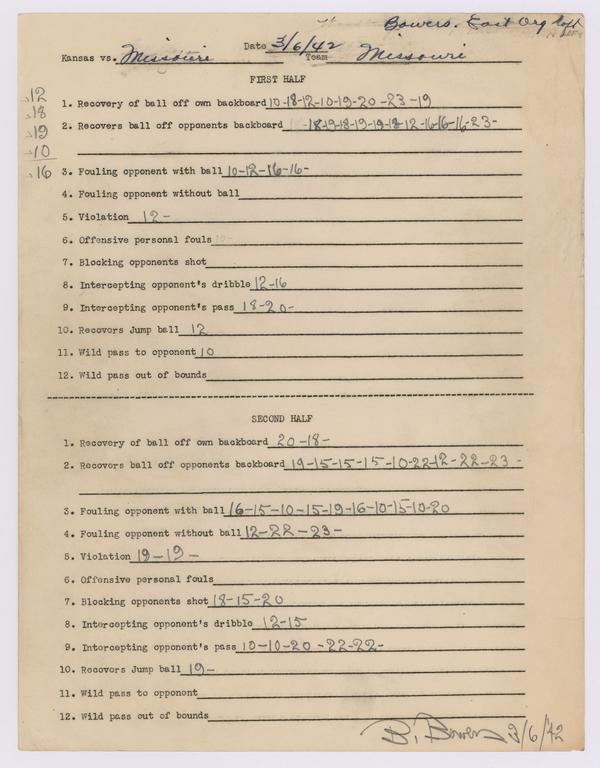 Bowers, East Org
Date 3/6/42
Kansas vs. Missouri Team Missouri
FIRST HALF
12
18
19
10
16
1. Recovery of ball off own backboard 10-18-12-10-19-20-23-19
2. Recovers ball off opponents backboard -18-19-18-19-19-18-12-16-16-16-23-
3. Fouling opponent with ball 10-12-16-16-
4. Fouling opponent without ball
5. Violation 12-
6. Offensive personal fouls
7. Blocking opponents shot
8. Intercepting opponent's dribble 12-16
9. Intercepting opponent's pass 18-20-
10. Recovers Jump ball 12
11. Wild pass to opponent 10
12. Wild pass out of bounds
SECOND HALF
1. Recovery of ball off own backboard 20-18-
2. Recovers ball off opponents backboard 19-15-15-15-10-22-12-22-23-
3. Fouling opponent with ball 16-15-10-15-19-16-10-15-10-20
4. Fouling opponent without ball 12-22-23-
5. Violation 19-19-
6. Offensive personal fouls
7. Blocking opponents shot 18-15-20
8. Intercepting opponent's dribble 12-15
9. Intercepting opponent's pass 10-10-20-22-22-
10. Recovers Jump ball 19-
11. Wild pass to opponent
12. Wild pass out of bounds
B. Bowers 3/6/42